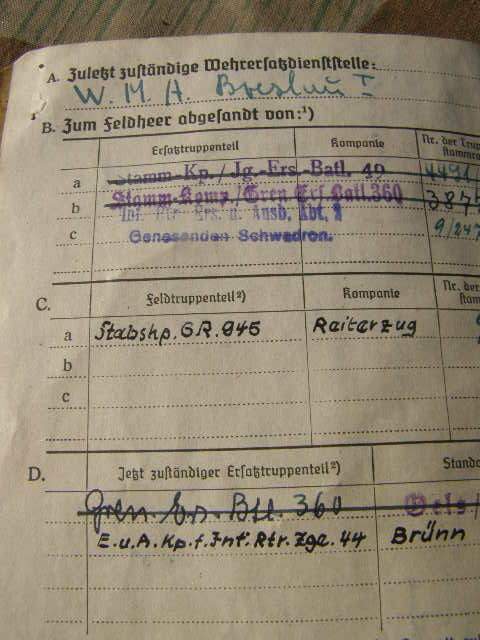 A. Zuletzt zuständige Wehrersatzdienststelle:
W. M. A. Breslau I
B. Zum Feldheer abgesandt von:¹)
Ersatztruppenteil Kompanie Nr. der
a Stamm-Kp. / Jg.-Ers.-Batl. 49 4491
b Stamm-Komp./Gren.Ers.Batl.360 387
Inf. Rtr.-Ers. u. Ausb. Abt. 2
c Genesenden Schwadron. 9/247
C. Feldtruppenteil²) Kompanie Nr. der
a Stabskp. G.R. 945 Reiterzug
b
c
D. Jetzt zuständiger Ersatztruppenteil²)
Gren. Ers. Btl. 360 Oels
E.u.A.Kp.f.Inf.Rtr.Zge.44 Brünn